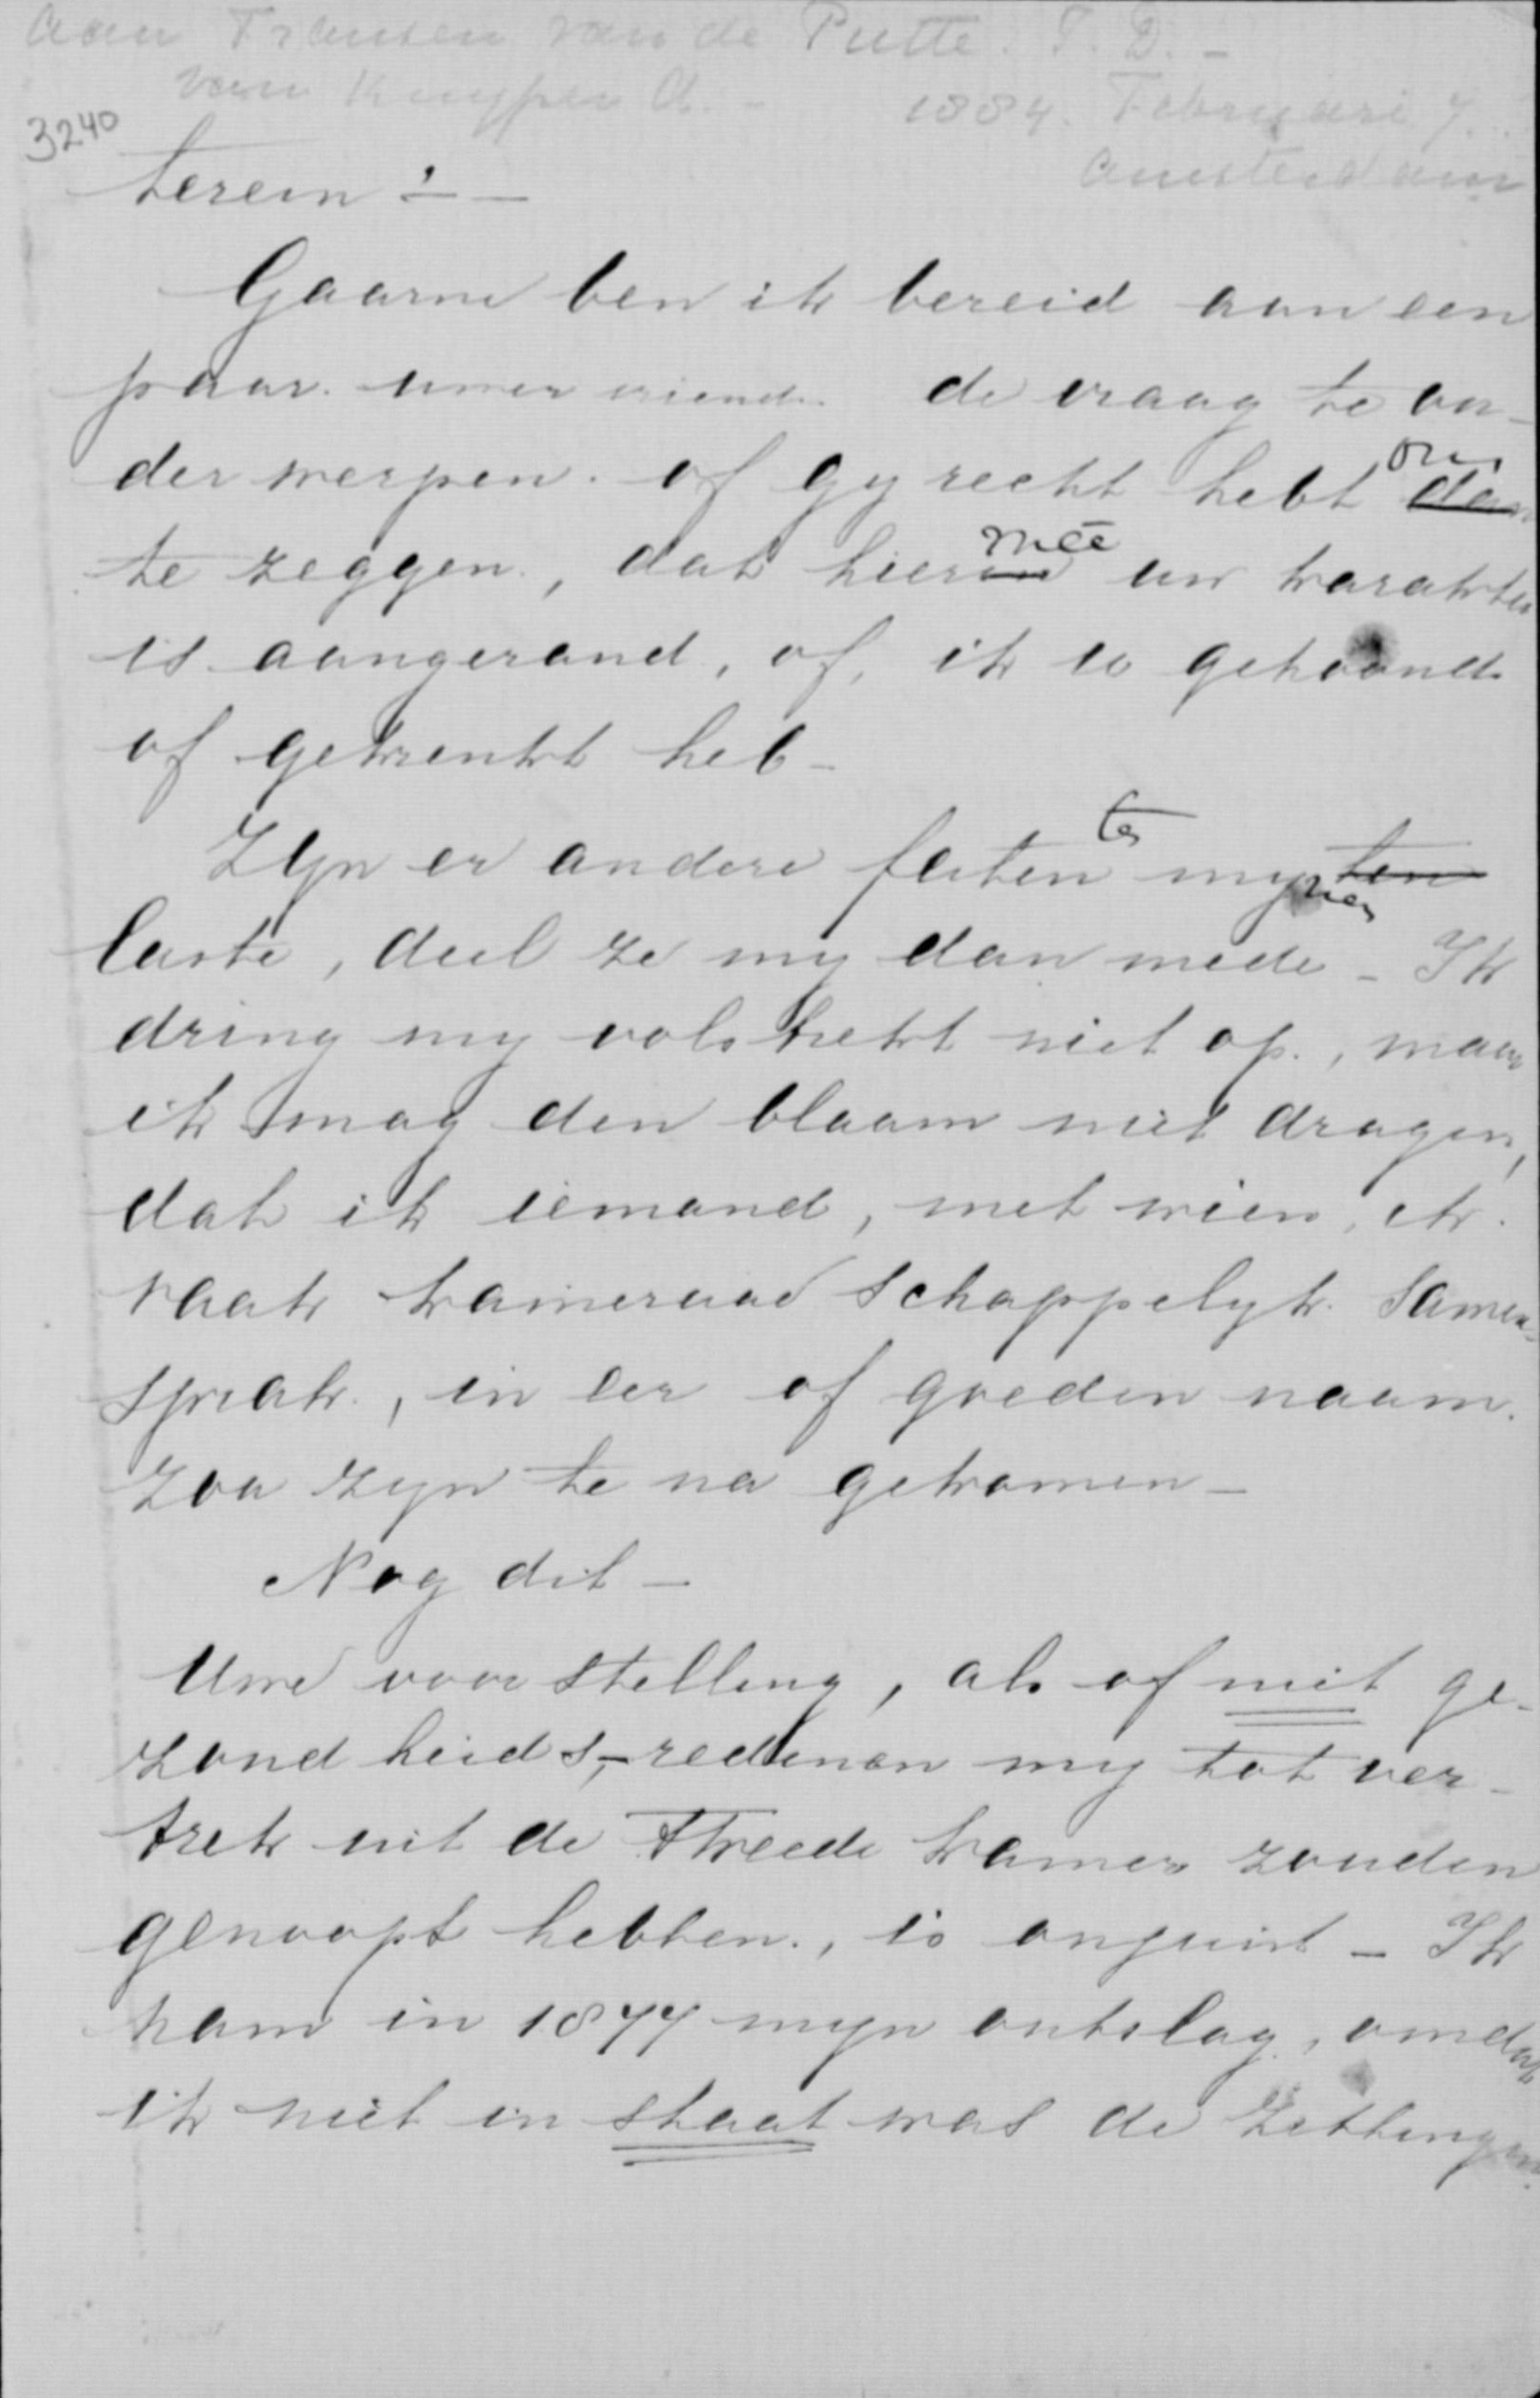 Aan Fransen van de Putte. I. D. -
van Kuyper A. - 1884. Februari 7.
3240 Amsterdam
terein : —
Gaarne ben ik bereid aan een
paar uwer vriend. de vraag te on-
derwerpen. of gy recht hebt om ~~dan~~
te zeggen, dat hier~~in~~mêe uw karakter
is aangerand, of, ik u gehoond
of gekrenkt heb -
Zyn er andere feiten te mynen ~~ten~~
laste, deel ze my dan mede - Ik
dring my volstrekt niet op, maar
ik mag den blaam niet dragen,
dat ik iemand, met wien ik
vaak kameraadschappelyk samen-
sprak, in eer of goeden naam
zou zyn te na gekomen -
Nog dit -
Uwe voorstelling, als of niet ge-
zondheids-redenen my tot ver-
trek uit de Tweede kamer zouden
genoopt hebben, is onjuist - Ik
nam in 1877 myn ontslag, omdat
ik niet in staat was de zittingen